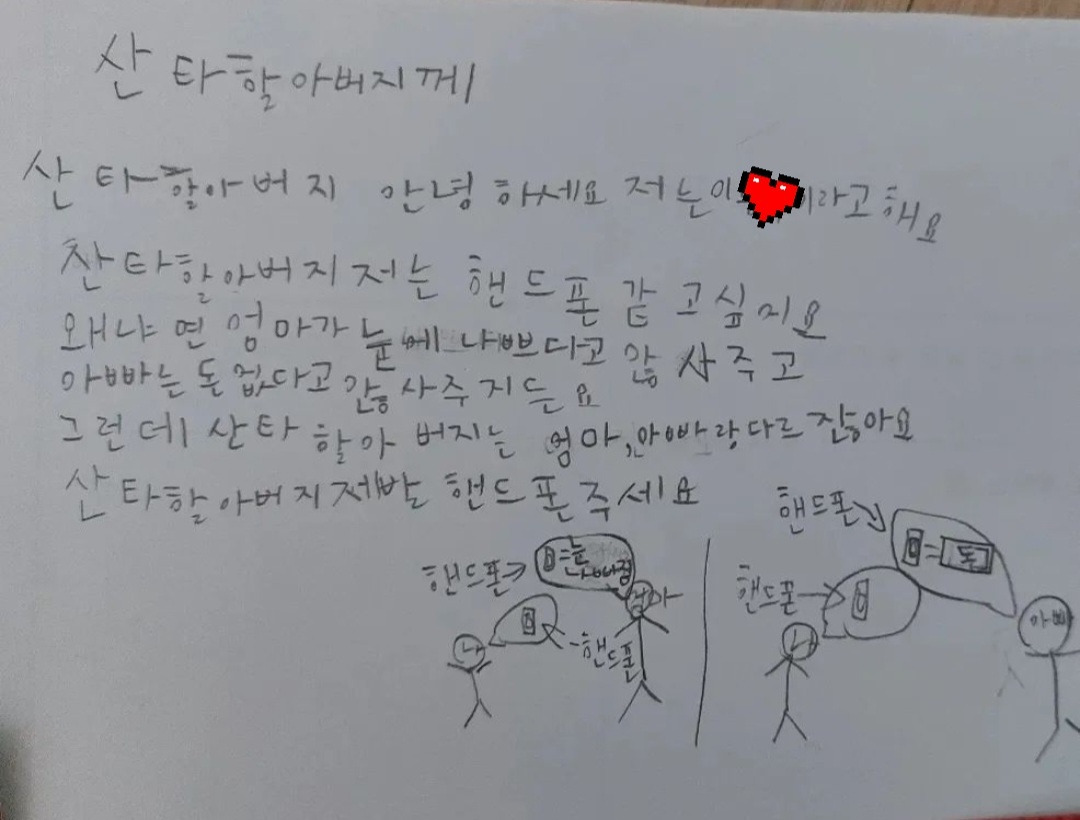 산타할아버지께
산타할아버지 안녕하세요 저는이 이라고해요
찬타할아버지저는 핸드폰 같고싶지요
왜냐면 엄마가 눈에 나쁘다고 않 사주고
아빠는 돈 없다고 않 사주지든요
그런데 산타 할아버지는 엄마,아빠랑다르잖아요
산타할아버지제발 핸드폰주세요
핸드폰
=눈
나빠짐
엄마
나
핸드폰
핸드폰
=돈
핸드폰
나
아빠